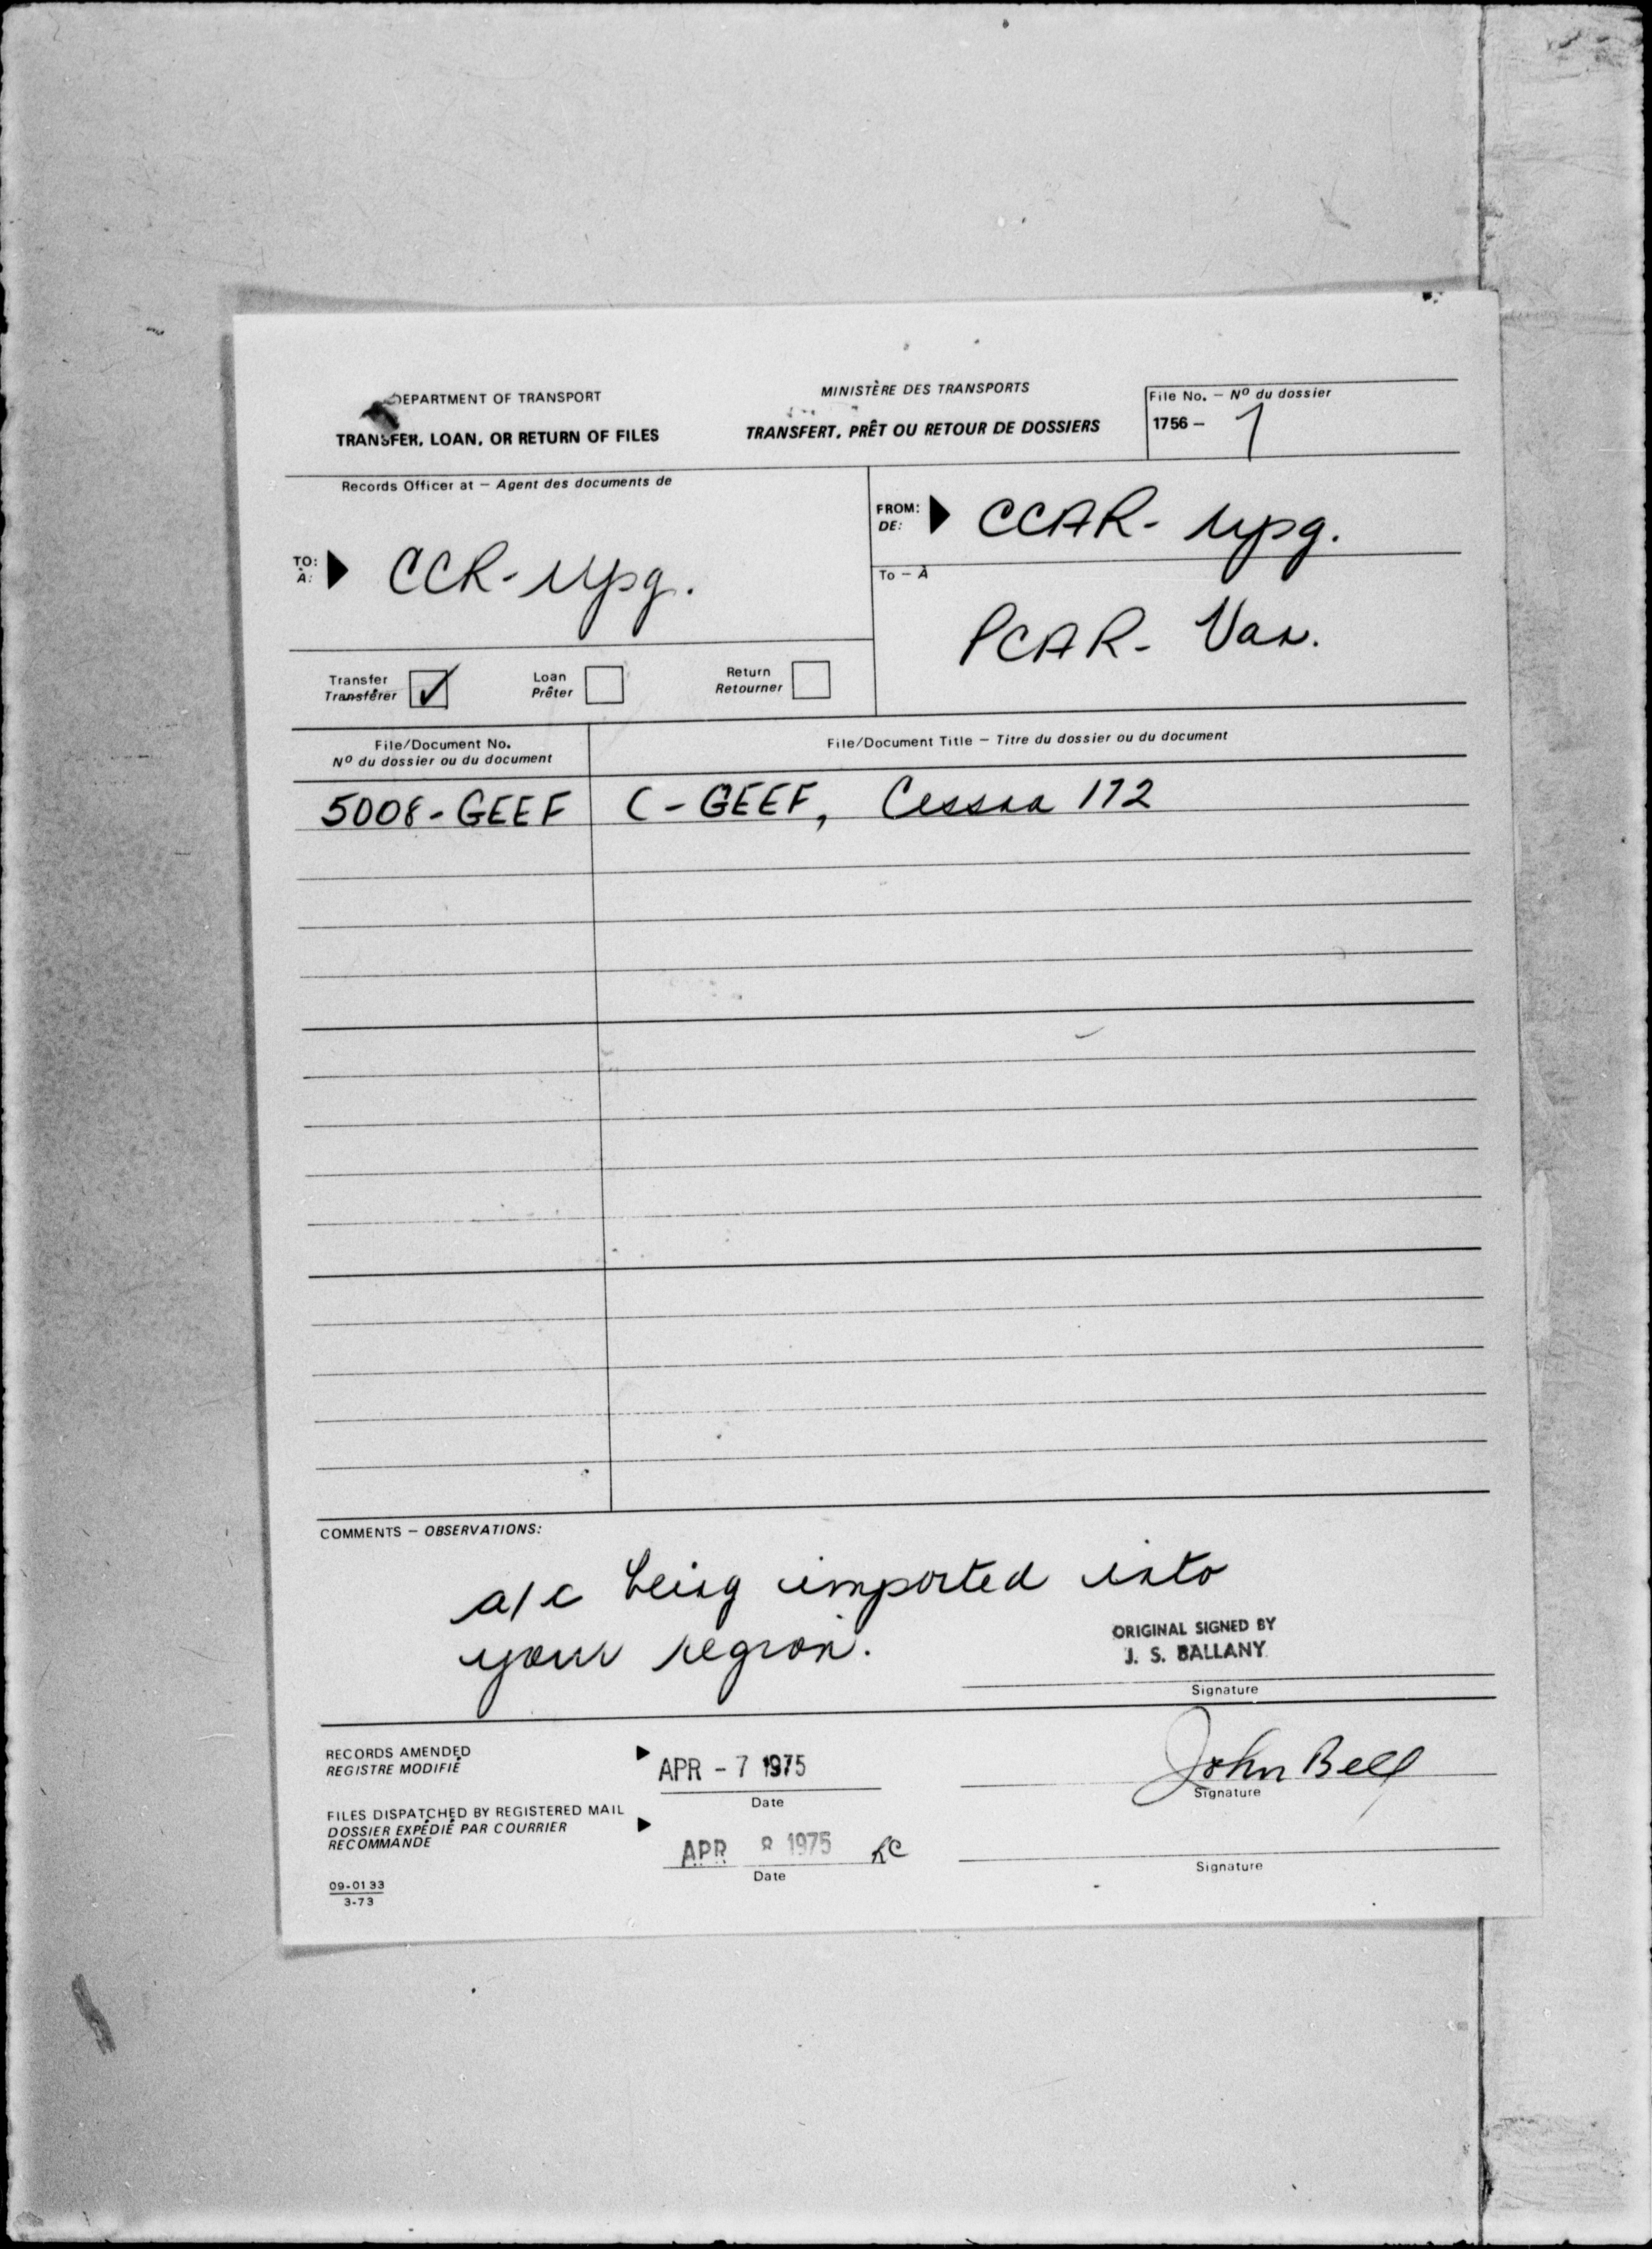 DEPARTMENT OF TRANSPORT
TRANSFER, LOAN, OR RETURN OF FILES
MINISTÈRE DES TRANSPORTS
TRANSFERT, PRÊT OU RETOUR DE DOSSIERS
File No. – Nº du dossier
1756 – 1
Records Officer at – Agent des documents de
TO:
À:
CCR- Wpg.
FROM:
DE:
CCAR- Wpg.
To – À
PCAR- Van.
Transfer
Transférer
✓
Loan
Prêter
Return
Retourner
File/Document No.
Nº du dossier ou du document
File/Document Title – Titre du dossier ou du document
5008-GEEF
C-GEEF, Cessna 172
COMMENTS – OBSERVATIONS:
a/c being imported into
your region.
ORIGINAL SIGNED BY
J. S. BALLANY
Signature
RECORDS AMENDED
REGISTRE MODIFIÉ
APR - 7 1975
Date
John Bell
Signature
FILES DISPATCHED BY REGISTERED MAIL
DOSSIER EXPÉDIÉ PAR COURRIER
RECOMMANDE
APR 8 1975
Date
Signature
09-0133
3-73